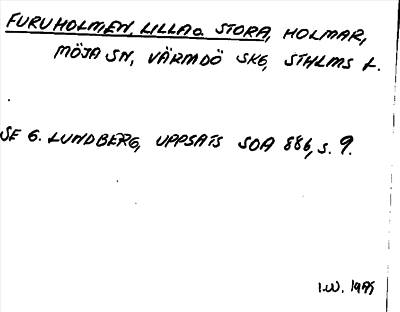 FURUHOLMEN, LILLA o. STORA, HOLMAR,
MÖJA SN, VÄRMDÖ SKG, STHLMS L.
SE G. LUNDBERG, UPPSATS SOA 886, s. 9.
I.W. 1995